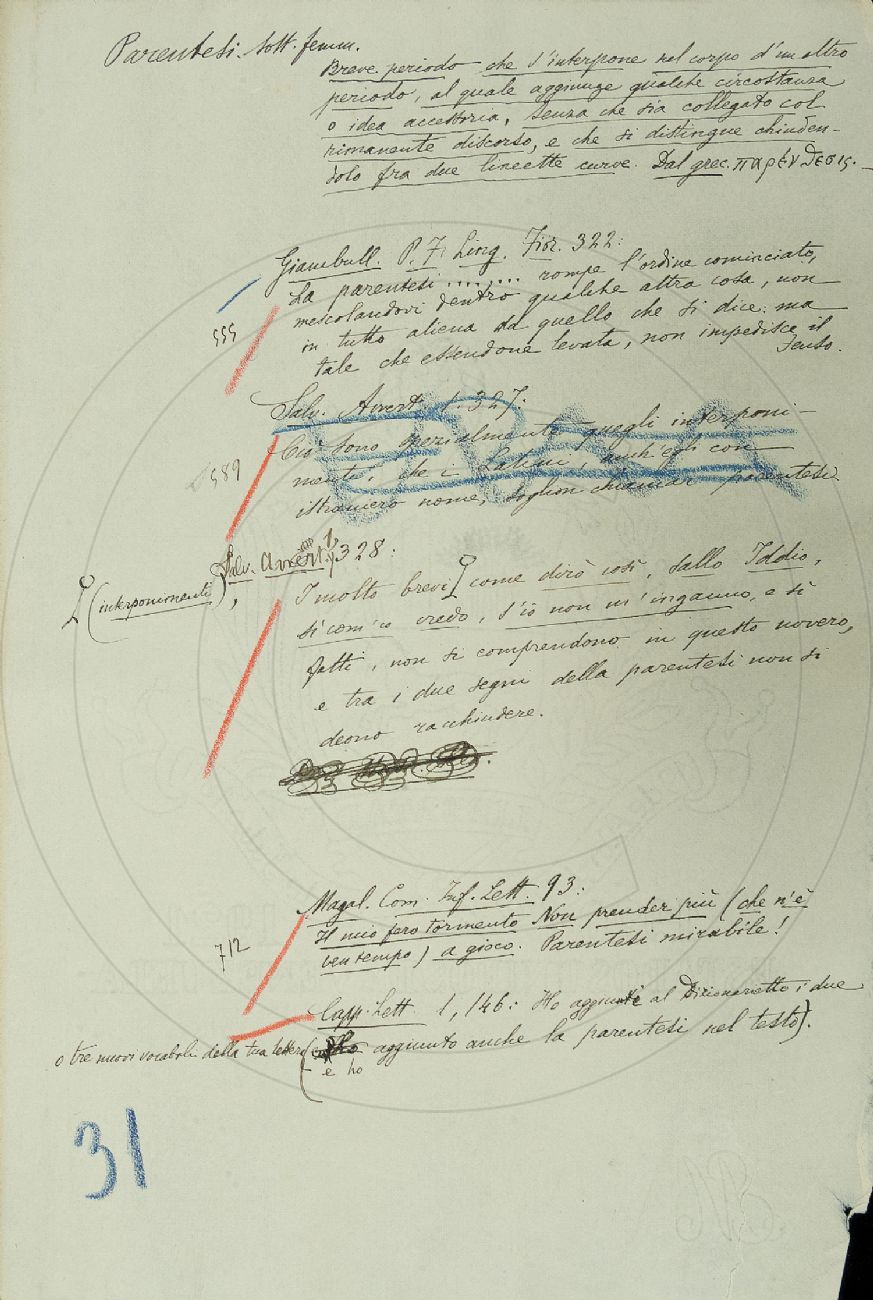 Parentesi. Sost. femm.
Breve periodo che s'interpone nel corpo d'un altro
periodo, al quale aggiunge qualche circostanza
o idea accessoria, senza che sia collegato col
rimanente discorso, e che si distingue chiuden-
dolo fra due lineette curve. Dal grec. παρένθεσις. —
Giambull. P. F. Ling. Fior. 322:
La parentesi ........ rompe l'ordine cominciato,
mescolandovi dentro qualche altra cosa, non
in tutto aliena da quello che si dice: ma
555
tale che essendone levata, non impedisce il
senso.
Salv. Avvert. 1. 327:
Ciò sono specialmente quegli interponi-
menti, che i Latini, anch'egli con
589
istraniero nome, soglion chiamar parentesi.
Salv. Avvert. 1, 328:
(interponimenti),
I molto brevi come dirò così, sallo Iddio,
sì com'io credo, s'io non m'inganno, e sì
fatti, non si comprendono in questo novero,
e tra i due segni della parentesi non si
deono racchiudere.
Magal. Com. Inf. Lett. 93:
Il mio fero tormento Non prender più (che n'è
712
ben tempo) a gioco. Parentesi mirabile!
Capp. Lett. 1, 146: Ho aggiunte al Dizionaretto i due
o tre nuovi vocaboli della tua lettera (
aggiunto anche la parentesi nel testo).
e ho
31